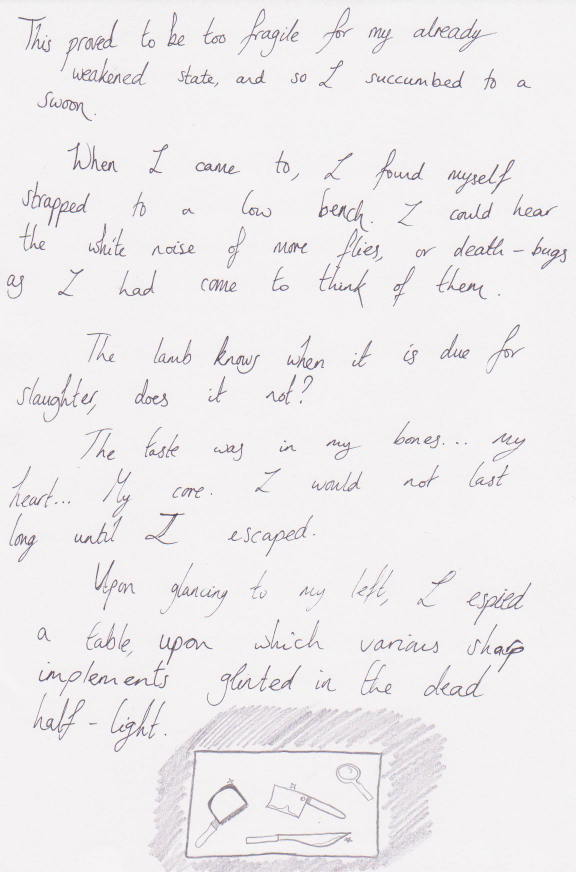 This proved to be too fragile for my already
weakened state, and so I succumbed to a
swoon.
When I came to, I found myself
strapped to a low bench. I could hear
the white noise of more flies, or death-bugs
as I had come to think of them.
The lamb knows when it is due for
slaughter, does it not?
The taste was in my bones... my
heart... My core. I would not last
long until I escaped.
Upon glancing to my left, I espied
a table, upon which various sharp
implements glinted in the dead
half-light.